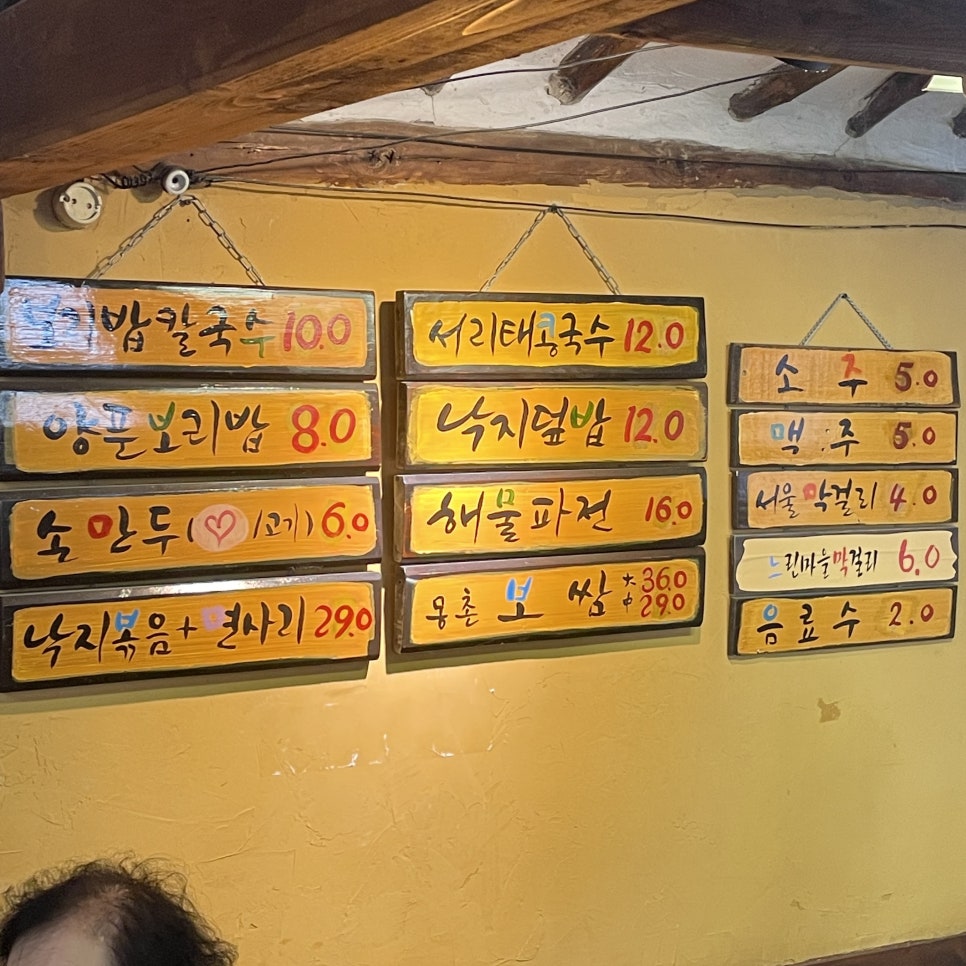 보리밥칼국수 10.0
양푼보리밥 8.0
손만두(♡/고기) 6.0
낙지볶음+면사리 29.0
서리태콩국수 12.0
낙지덮밥 12.0
해물파전 16.0
몽촌 보쌈 大36.0
中29.0
소주 5.0
맥주 5.0
서울막걸리 4.0
느린마을막걸리 6.0
음료수 2.0